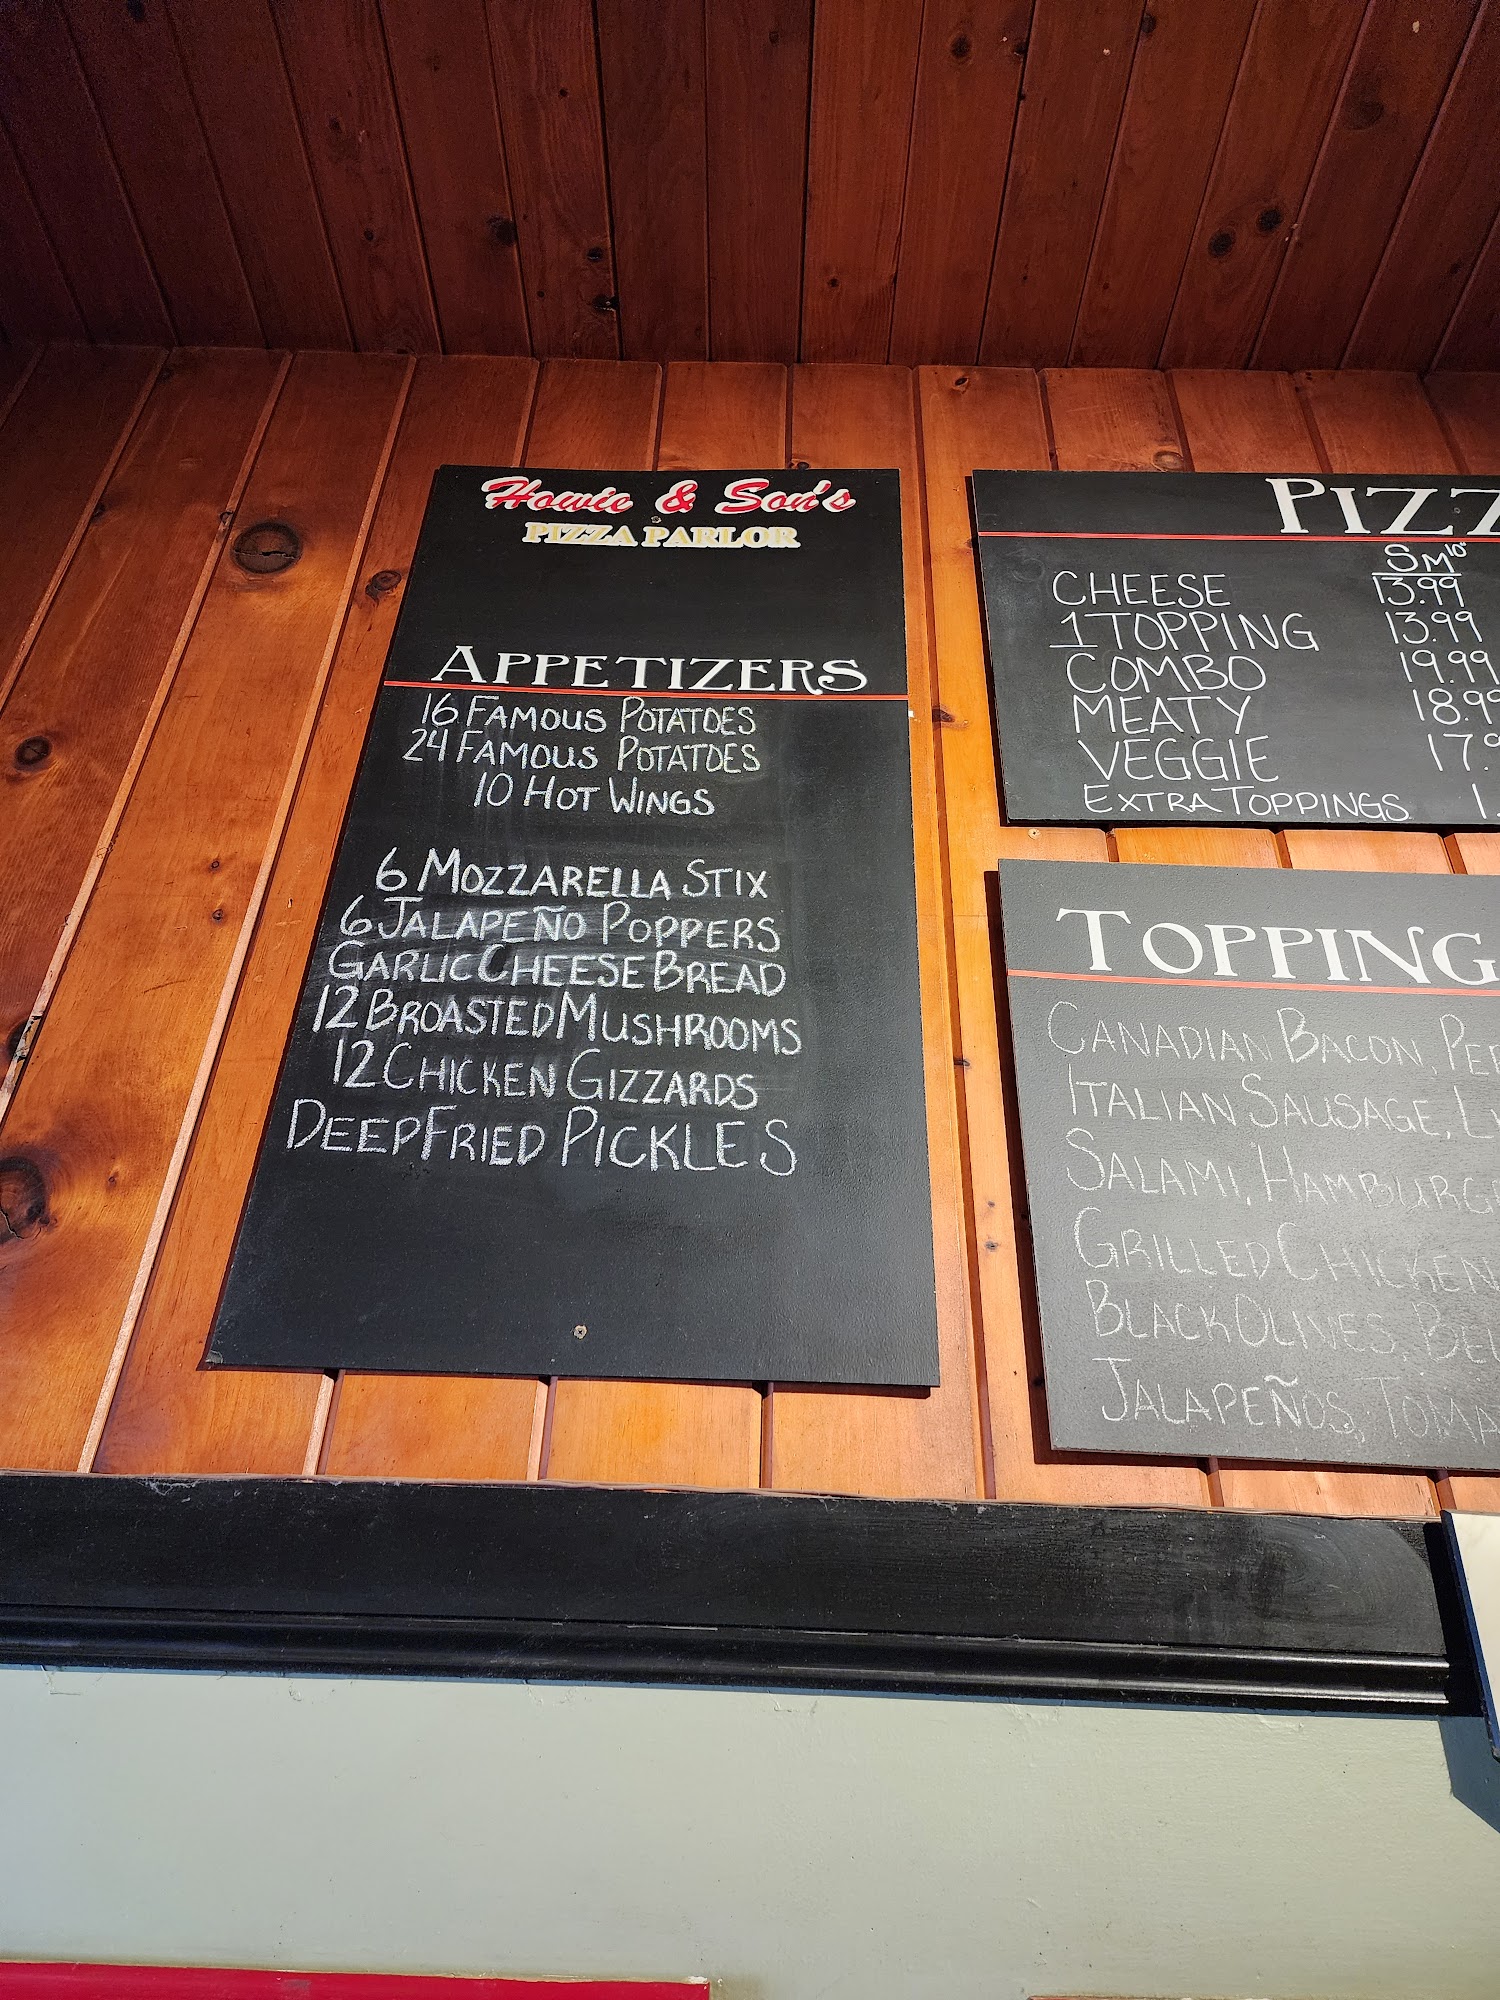 Howie & Son's
PIZZA PARLOR
APPETIZERS
16 FAMOUS POTATOES
24 FAMOUS POTATOES
10 HOT WINGS
6 MOZZARELLA STIX
6 JALAPEÑO POPPERS
GARLIC CHEESE BREAD
12 BROASTED MUSHROOMS
12 CHICKEN GIZZARDS
DEEP FRIED PICKLES
SM 10"
CHEESE 13.99
1 TOPPING 13.99
COMBO 19.99
MEATY 18.99
VEGGIE
EXTRA TOPPINGS
CANADIAN BACON,
ITALIAN SAUSAGE,
SALAMI,
GRILLED CHICKEN
BLACK OLIVES,
JALAPEÑOS,